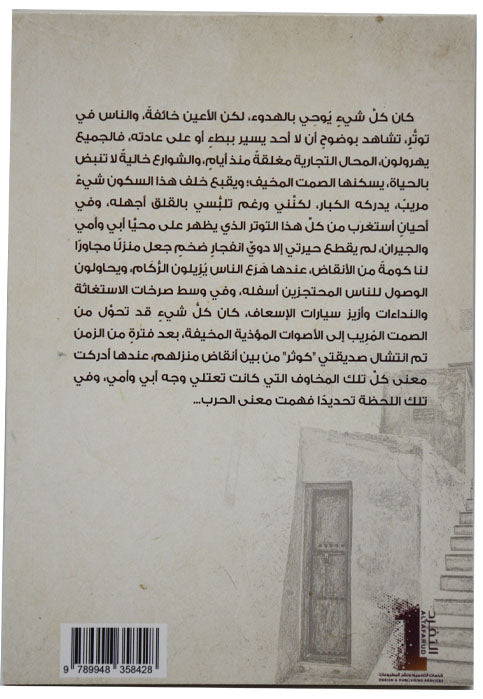 كان كلُّ شيءٍ يُوحِي بالهدوء، لكن الأعين خائفةً، والناس في
توتُّر، تشاهد بوضوح أن لا أحد يسير ببطءٍ أو على عادته، فالجميع
يهرولون، المحال التجارية مغلقةً منذ أيام، والشوارع خاليةً لا تنبض
بالحياة، يسكنها الصمت المخيف؛ ويقبع خلف هذا السكون شيءٌ
مريبٌ، يدركه الكبار، لكنّني ورغم تلبُّسي بالقلق أجهله، وفي
أحيانٍ أستغرب من كلِّ هذا التوتر الذي يظهر على محيّا أبي وأمي
والجيران، لم يقطع حيرتي إلا دويّ انفجارٍ ضخمٍ جعل منزلًا مجاورًا
لنا كومةً من الأنقاض، عندها هَرَعَ الناس يُزيلون الرُّكَام، ويحاولون
الوصول للناس المحتجزين أسفله، وفي وسط صرخات الاستغاثة
والنداءات وأزيز سيارات الإسعاف، كان كلُّ شيءٍ قد تحوّل من
الصمت المُريب إلى الأصوات المؤذية المخيفة، بعد فترةٍ من الزمن
تم انتشال صديقتي "كوثر" من بين أنقاض منزلهم، عندها أدركت
معنى كلّ تلك المخاوف التي كانت تعتلي وجه أبي وأمي، وفي
تلك اللحظة تحديدًا فهمت معنى الحرب...
التفرّد
ALTAFARUD
DESIGN & PUBLISHING SERVICES
9 789948 358428